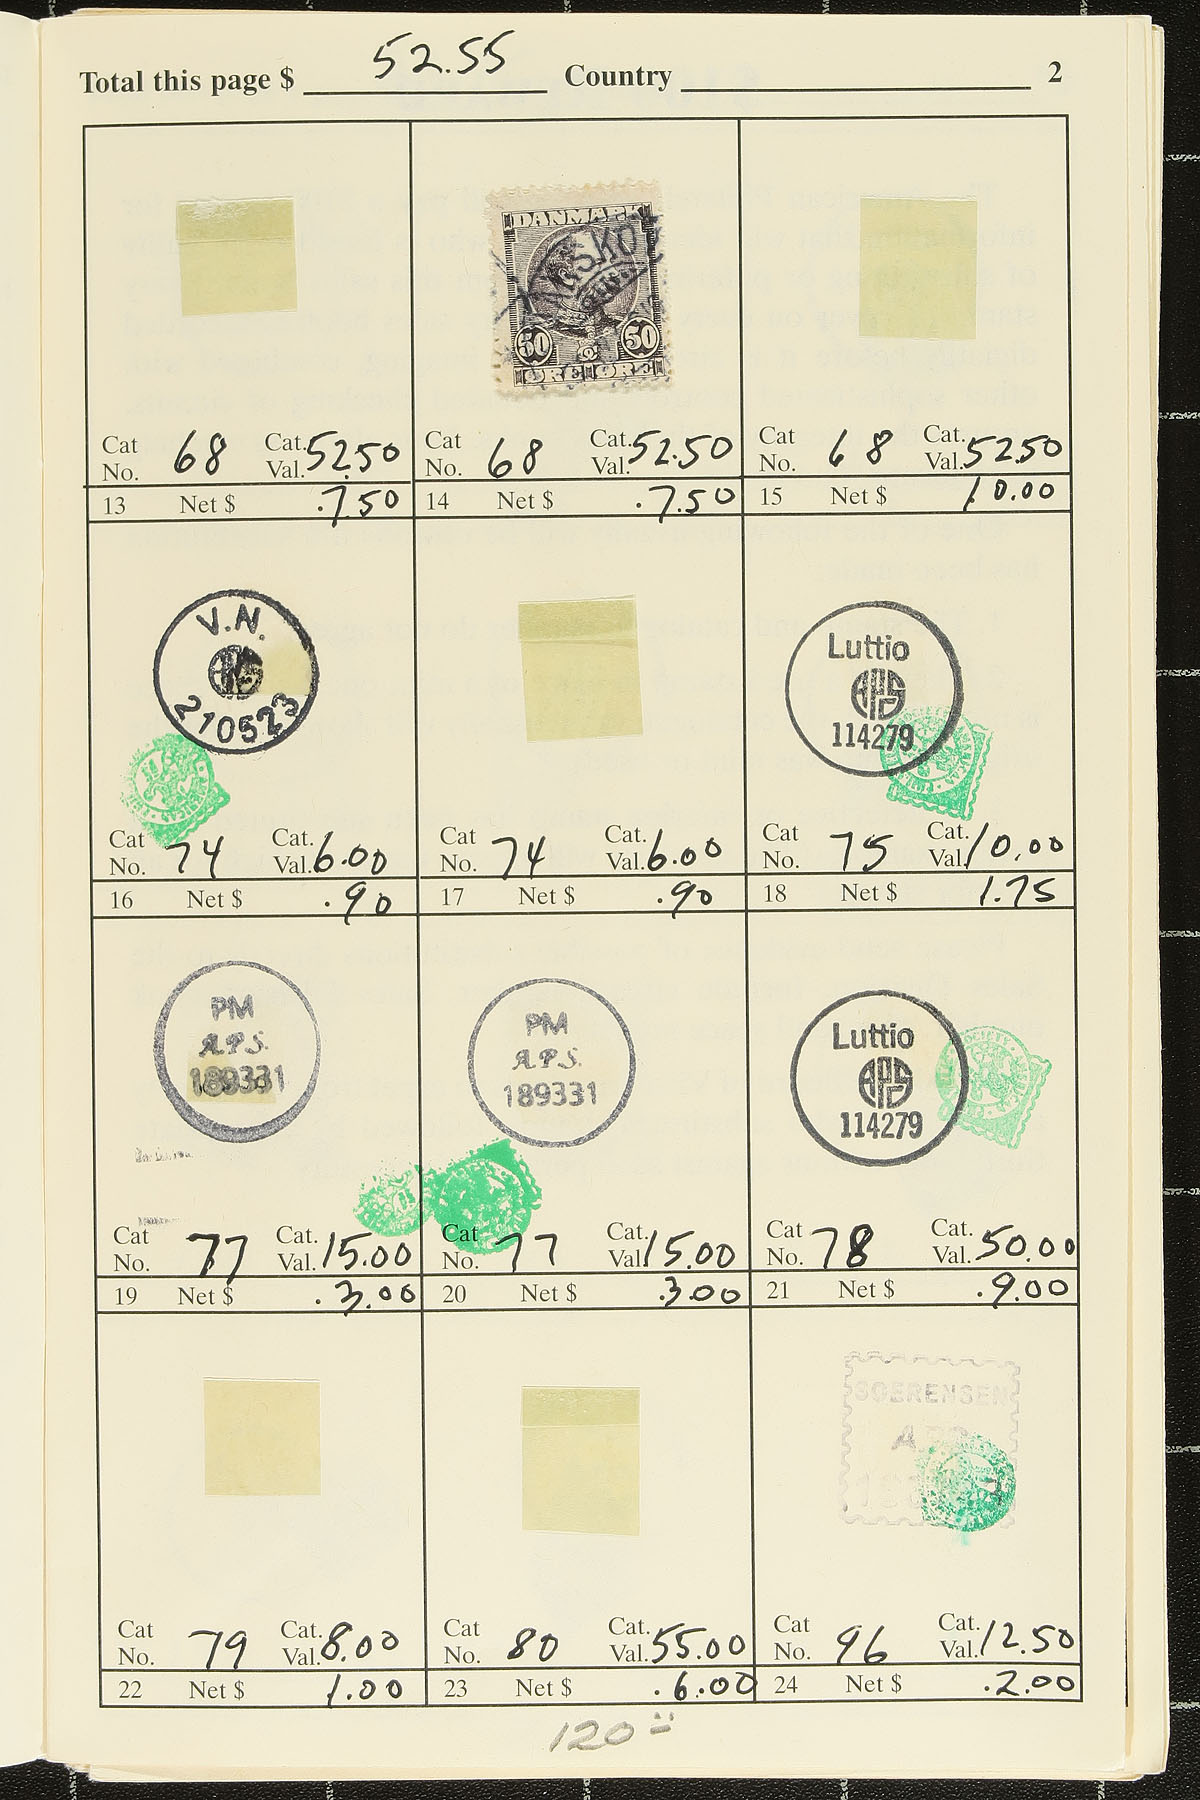 Total this page $ 52.55 Country 2
DANMARK
50 50
ØRE ØRE
Cat No. 68 Cat. Val. 52.50
13 Net $ .7.50
Cat No. 68 Cat. Val. 52.50
14 Net $ .7.50
Cat No. 68 Cat. Val. 52.50
15 Net $ 10.00
V.N.
APS
210523
Luttio
APS
114279
Cat No. 74 Cat. Val. 6.00
16 Net $ .90
Cat No. 74 Cat. Val. 6.00
17 Net $ .90
Cat No. 75 Cat. Val. 10.00
18 Net $ 1.75
PM
A.P.S.
189331
PM
A.P.S.
189331
Luttio
APS
114279
Cat No. 77 Cat. Val. 15.00
19 Net $ .3.00
Cat No. 77 Cat. Val. 15.00
20 Net $ .3.00
Cat No. 78 Cat. Val. 50.00
21 Net $ .9.00
SOERENSEN
Cat No. 79 Cat. Val. 8.00
22 Net $ 1.00
Cat No. 80 Cat. Val. 55.00
23 Net $ .6.00
Cat No. 96 Cat. Val. 12.50
24 Net $ .2.00
120=